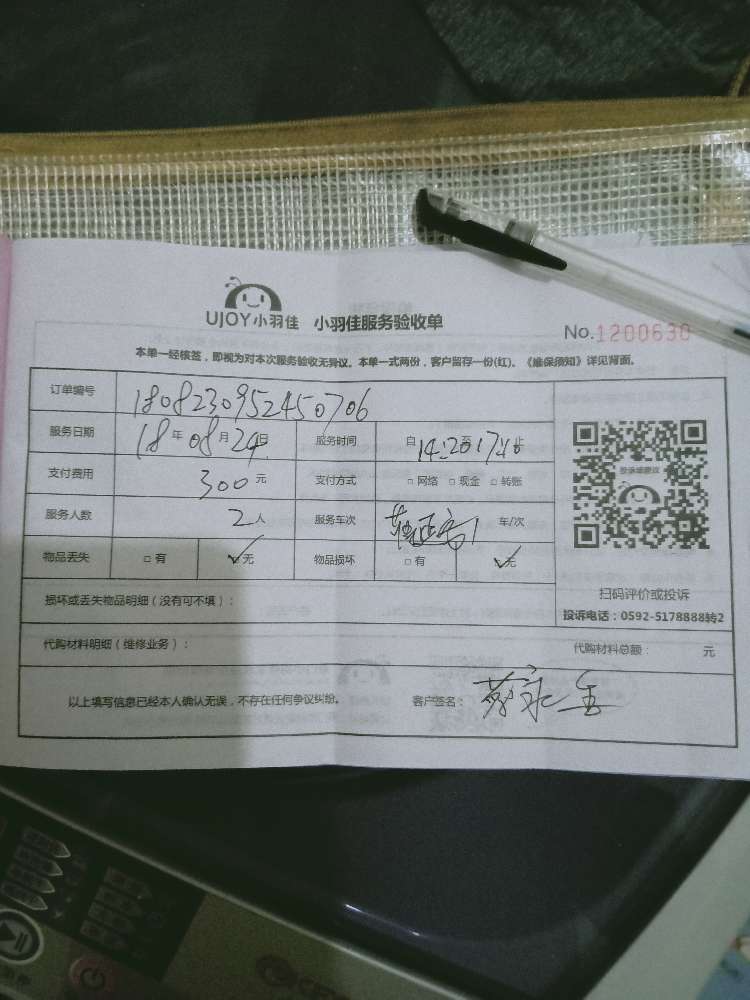 UJOY小羽佳 小羽佳服务验收单
No.1200630
本单一经核签，即视为对本次服务验收无异议。本单一式两份，客户留存一份(红)。《维保须知》详见背面。
订单编号 1808230952450706
服务日期 18年08月24日 服务时间 自14:20至17:40止
支付费用 300元 支付方式 □网络 □现金 □转账
服务人数 2人 服务车次 车/次
物品丢失 □有 ✓无 物品损坏 □有 ✓无
投诉或建议
扫码评价或投诉
投诉电话：0592-5178888转2
损坏或丢失物品明细（没有可不填）：
代购材料明细（维修业务）： 代购材料总额： 元
以上填写信息已经本人确认无误，不存在任何争议纠纷。 客户签名：